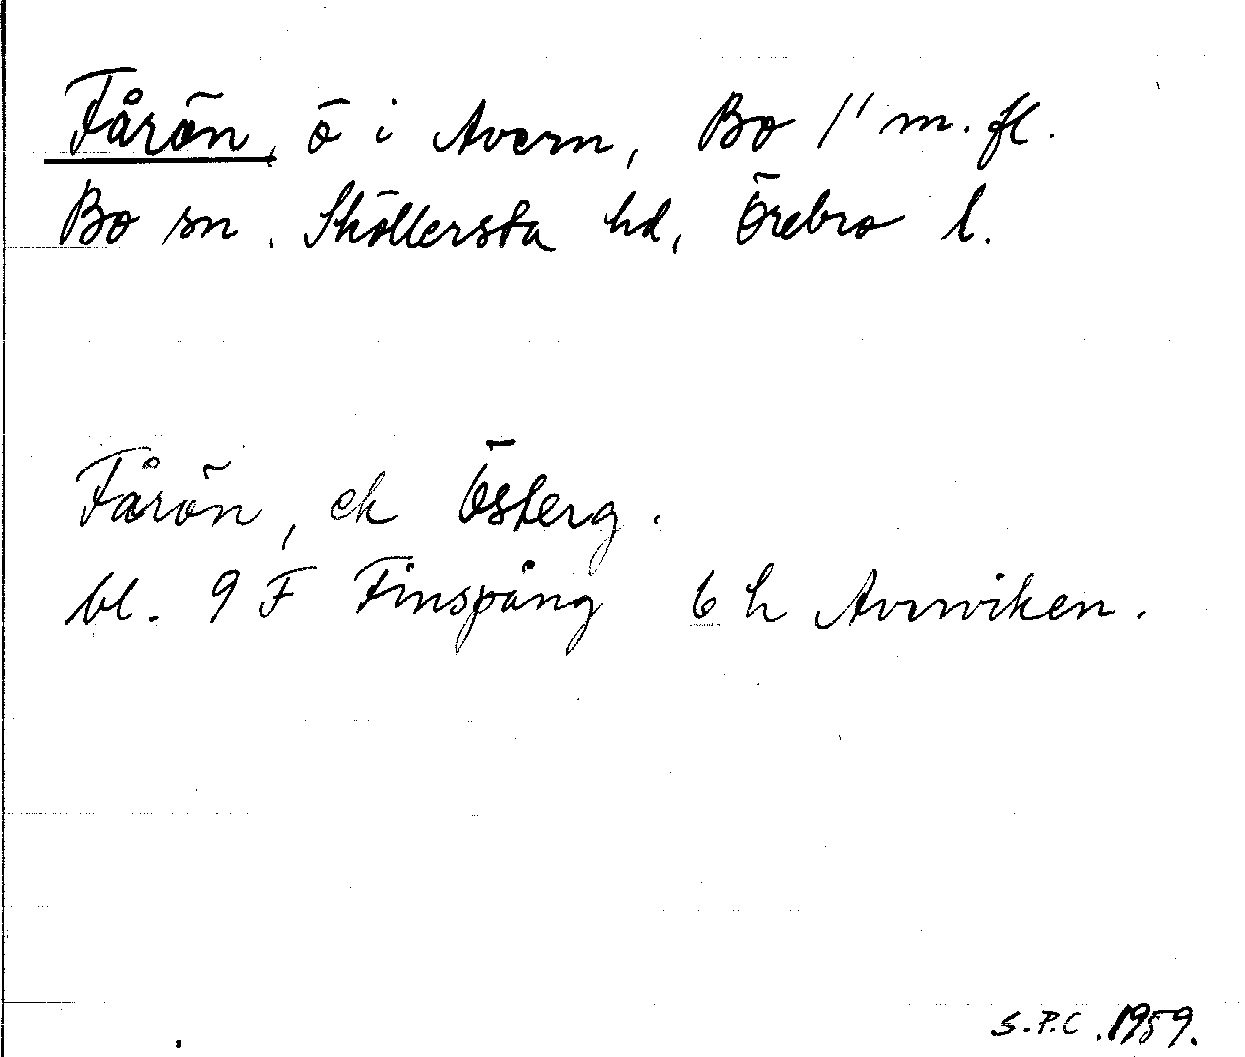 Fårön, ö i Avern, Bo 1¹ m. fl.
Bo sn. Sköllersta hd, Örebro l.
Fårön, ek Österg.
bl. 9 F Finspång 6 h Averviken.
S.P.C. 1959.